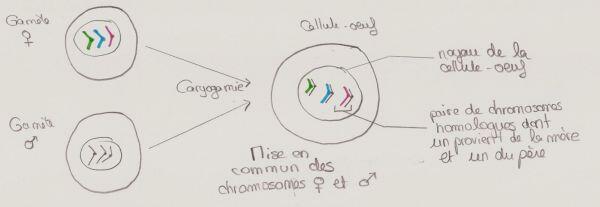 Gamète
♀
Gamète
♂
Caryogamie
Cellule-oeuf
Mise en
commun des
chromosomes ♀ et ♂
noyau de la
cellule-oeuf
paire de chromosomes
homologues dont
un provient de la mère
et un du père